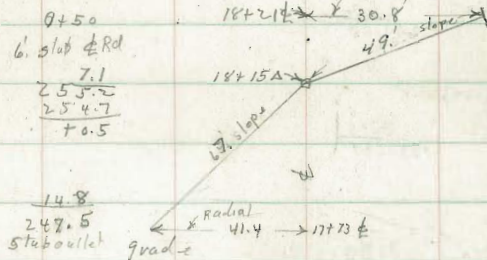 0+50
6' stub ℄ Rd
7.1
255.2
254.7
+0.5
14.8
247.5
stub outlet
18+21 ℄ 30.8'
49' slope
18+15 Δ
67' slope
Radial
41.4 17+73 ℄
grade